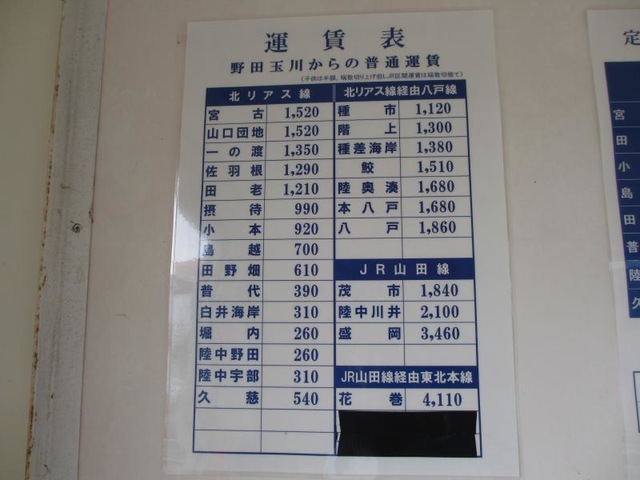 運賃表
野田玉川からの普通運賃
(子供は半額、端数切り上げ但しJR区間運賃は端数切捨て)
北リアス線
宮古 1,520
山口団地 1,520
一の渡 1,350
佐羽根 1,290
田老 1,210
摂待 990
小本 920
島越 700
田野畑 610
普代 390
白井海岸 310
堀内 260
陸中野田 260
陸中宇部 310
久慈 540
北リアス線経由八戸線
種市 1,120
階上 1,300
種差海岸 1,380
鮫 1,510
陸奥湊 1,680
本八戸 1,680
八戸 1,860
JR山田線
茂市 1,840
陸中川井 2,100
盛岡 3,460
JR山田線経由東北本線
花巻 4,110
定
宮
田
小
島
田
普
陸
久